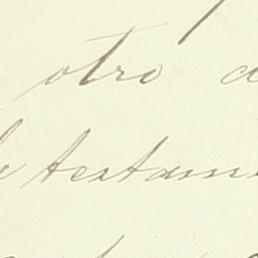 otro
testam